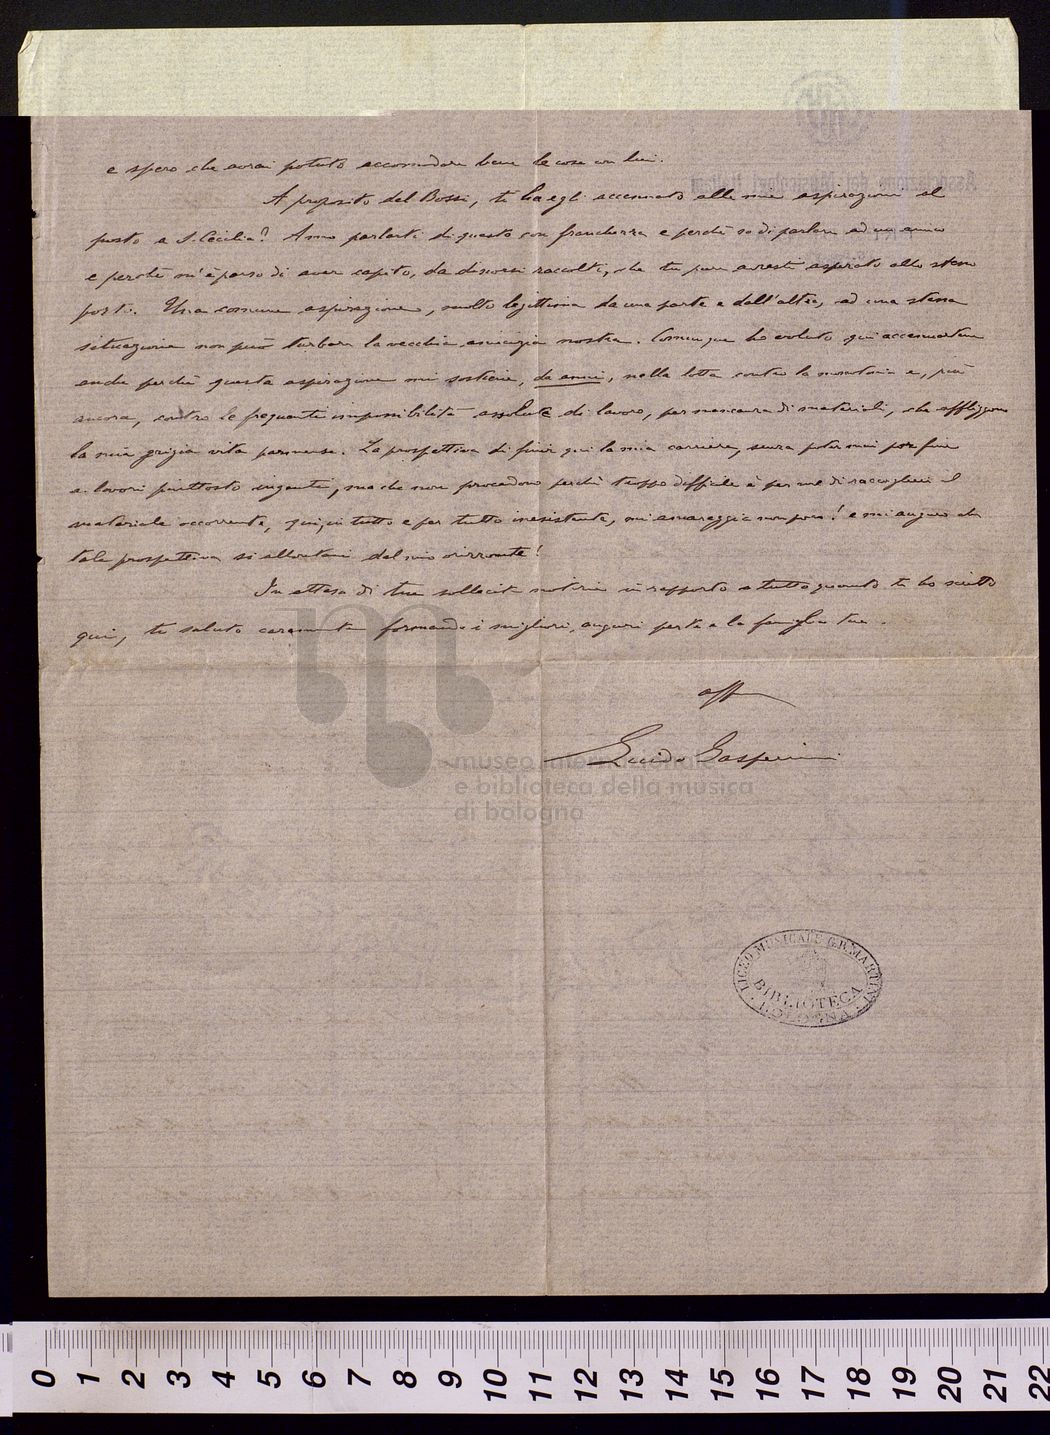 e spero che avrai potuto accomodare bene le cose con lui.
A proposito del Bossi, ti ha egli accennato alle mie aspirazioni al
posto a S. Cecilia? Amo parlarti di questo con franchezza e perchè so di parlare ad un amico
e perchè m'è parso di aver capito, da discorsi raccolti, che tu pure avresti aspirato allo stesso
posto. Una comune aspirazione, molto legittima da una parte e dall'altra, ad una stessa
situazione non può turbare la vecchia amicizia nostra. Comunque ho voluto qui accennartene
anche perchè questa aspirazione mi sostiene, da anni, nella lotta contro la monotonia e, più
ancora, contro le frequenti impossibilità assolute di lavoro, per mancanza di materiali, che affliggono
la mia grigia vita parmense. La prospettiva di finir qui la mia carriera, senza poter mai por fine
a lavori piuttosto ingenti, ma che non procedono perchè troppo difficile è per me di raccogliere il
materiale occorrente, quasi tutto e per tutto inesistente, mi amareggia non poco! e mi auguro che
tale prospettiva si allontani dal mio orizzonte!
In attesa di tue sollecite notizie in rapporto a tutto quanto ti ho scritto
qui, ti saluto caramente formando i migliori auguri per te e la famiglia tua.
aff
Guido Gasperini
museo internazionale
e biblioteca della musica
di bologna
LICEO MUSICALE G.B. MARTINI
BIBLIOTECA
BOLOGNA
0 1 2 3 4 5 6 7 8 9 10 11 12 13 14 15 16 17 18 19 20 21 22